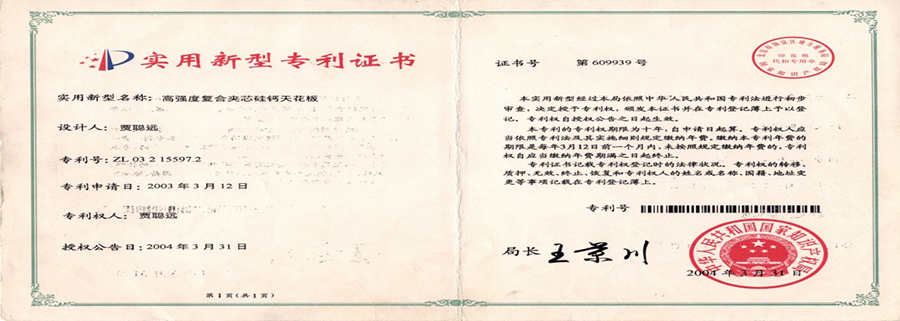 实用新型专利证书
实用新型名称：高强度复合夹芯硅钙天花板
设计人：贾聪远
专利号：ZL 03 2 15597.2
专利申请日：2003 年 3 月 12 日
专利权人：贾聪远
授权公告日：2004 年 3 月 31 日
第 1 页 (共 1 页)
证书号 第 609939 号
印花税
代扣专用章
本实用新型经过本局依照中华人民共和国专利法进行初步
审查，决定授予专利权，颁发本证书并在专利登记簿上予以登
记。专利权自授权公告之日起生效。
本专利的专利权期限为十年，自申请日起算。专利权人应
当依照专利法及其实施细则规定缴纳年费。缴纳本专利年费的
期限是每年3月12日前一个月内，未按照规定缴纳年费的，专利
权自应当缴纳年费期满之日起终止。
专利证书记载专利权登记时的法律状况。专利权的转移、
质押、无效、终止、恢复和专利权人的姓名或名称、国籍、地址变
更等事项记载在专利登记簿上。
专利号
中华人民共和国国家知识产权局
局长 王景川
2004 年 3 月 31 日